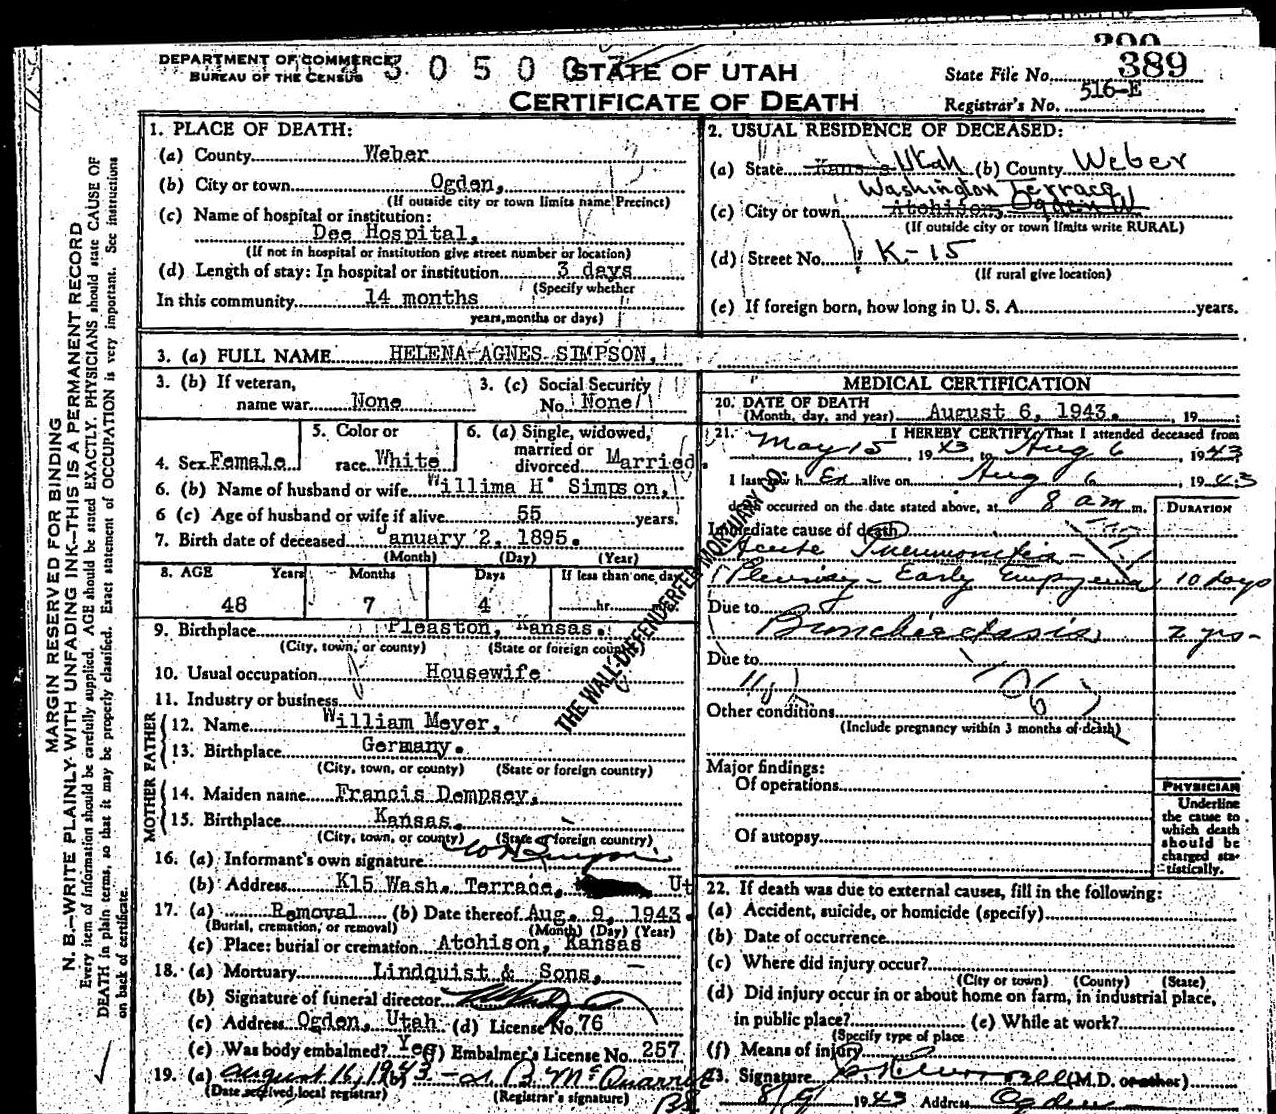 DEPARTMENT OF COMMERCE
BUREAU OF THE CENSUS
STATE OF UTAH
CERTIFICATE OF DEATH
State File No. 389
Registrar's No. 516-E
MARGIN RESERVED FOR BINDING
N. B.—WRITE PLAINLY WITH UNFADING INK—THIS IS A PERMANENT RECORD
Every item of information should be carefully supplied. AGE should be stated EXACTLY. PHYSICIANS should state CAUSE OF
DEATH in plain terms, so that it may be properly classified. Exact statement of OCCUPATION is very important. See instructions
on back of certificate.
1. PLACE OF DEATH:
(a) County Weber
(b) City or town Ogden,
(If outside city or town limits name Precinct)
(c) Name of hospital or institution:
Dee Hospital,
(If not in hospital or institution give street number or location)
(d) Length of stay: In hospital or institution 3 days
(Specify whether
In this community 14 months
years, months or days)
2. USUAL RESIDENCE OF DECEASED:
(a) State Kansas Utah (b) County Weber
Washington Terrace
(c) City or town Atchison, Ogden W
(If outside city or town limits write RURAL)
(d) Street No. K-15
(If rural give location)
(e) If foreign born, how long in U. S. A. years.
3. (a) FULL NAME HELENA AGNES SIMPSON,
3. (b) If veteran,
name war None
3. (c) Social Security
No. None
4. Sex Female
5. Color or
race White
6. (a) Single, widowed,
married or
divorced Married.
6. (b) Name of husband or wife Willima H Simpson,
6 (c) Age of husband or wife if alive 55 years.
7. Birth date of deceased January 2, 1895.
(Month) (Day) (Year)
8. AGE Years Months Days If less than one day
48 7 4 hr.
9. Birthplace Pleaston, Kansas.
(City, town, or county) (State or foreign country)
10. Usual occupation Housewife
11. Industry or business
FATHER
12. Name William Meyer,
13. Birthplace Germany.
(City, town, or county) (State or foreign country)
MOTHER
14. Maiden name Francis Dempsey,
15. Birthplace Kansas.
(City, town, or county) (State or foreign country)
16. (a) Informant's own signature W H Simpson
(b) Address K15 Wash. Terrace, Ut
17. (a) Removal (b) Date thereof Aug. 9, 1943.
(Burial, cremation, or removal) (Month) (Day) (Year)
(c) Place: burial or cremation Atchison, Kansas
18. (a) Mortuary Lindquist & Sons,
(b) Signature of funeral director
(c) Address Ogden, Utah (d) License No. 76
(e) Was body embalmed? Yes (f) Embalmer's License No. 257
19. (a) August 16, 1943 (b)
(Date received local registrar) (Registrar's signature)
THE WALL-DIFFENDERFER MORTUARY CO.
MEDICAL CERTIFICATION
20. DATE OF DEATH
(Month, day, and year) August 6, 1943. 19
21. I HEREBY CERTIFY, That I attended deceased from
May 15, 1943, to Aug 6 1943,
I last saw h Er alive on Aug 6, 1943
death occurred on the date stated above, at 8 am. m.
DURATION
Immediate cause of death
Acute Pneumonitis-
Pleurisy - Early Empyema, 10 days
Due to
Bronchiectasis 2 yrs-
Due to
106
Other conditions
(Include pregnancy within 3 months of death)
Major findings:
Of operations
Of autopsy
PHYSICIAN
Underline
the cause to
which death
should be
charged sta-
tistically.
22. If death was due to external causes, fill in the following:
(a) Accident, suicide, or homicide (specify)
(b) Date of occurrence
(c) Where did injury occur?
(City or town) (County) (State)
(d) Did injury occur in or about home on farm, in industrial place,
in public place? (e) While at work?
(Specify type of place
(f) Means of injury
23. Signature (M.D. or other)
8/9/ 1943 Address Ogden